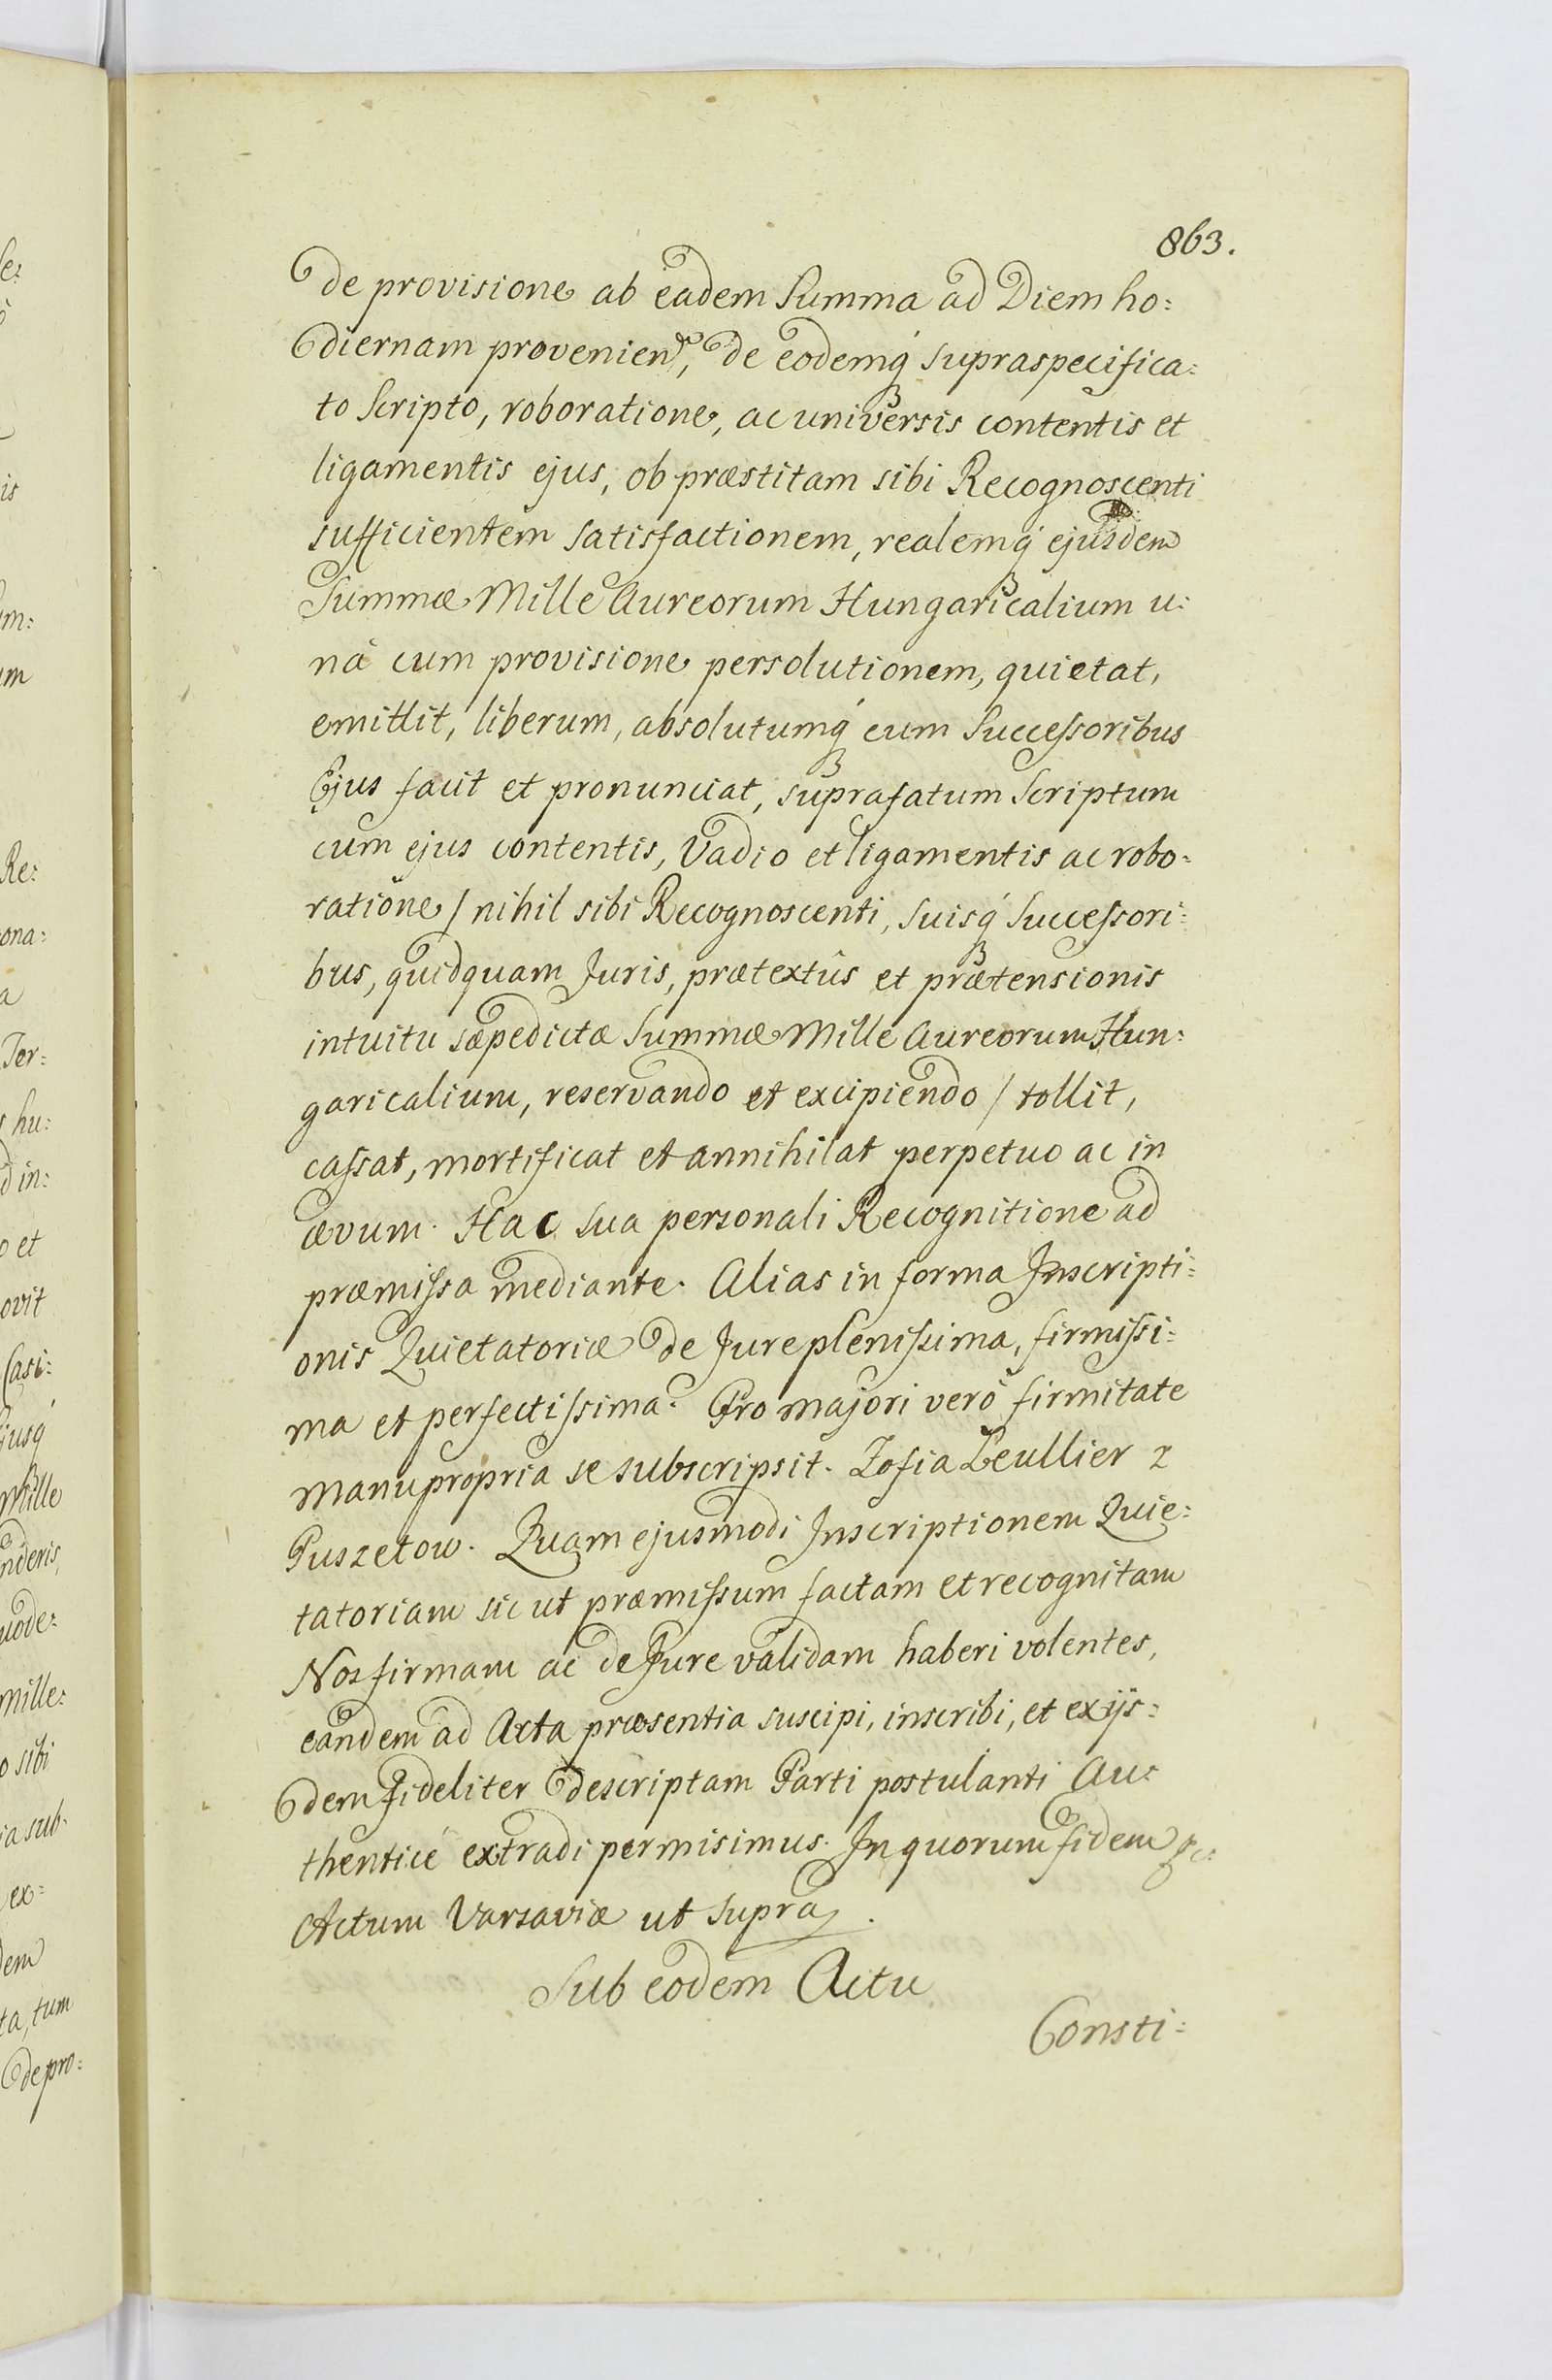 863.
de provisione ab eadem Summa ad Diem ho:
diernam provenien, de eodemq́ supraspecifica:
to Scripto, roboratione, ac universis contentis et
ligamentis ejus, ob præstitam sibi Recognoscenti
sufficientem satisfactionem, realemq́ ejusdem
Summæ Mille Aureorum Hungaricalium u:
nà cum provisione persolutionem, quietat,
emittit, liberum, absolutumq́ cum Successoribus
Ejus facit et pronunciat, suprafatum Scriptum
cum ejus contentis, Vadio et ligamentis ac robo:
ratione / nihil sibi Recognoscenti, suisq́ Successori:
bus, quidquam Juris, prætextûs et prætensionis
intuitu sæpedictæ Summæ Mille Aureorum Hun:
garicalium, reservando et excipiendo / tollit,
cassat, mortificat et annihilat perpetuo ac in
ævum. Hac sua personali Recognitione ad
præmissa mediante. Alias in forma Inscripti:
onis Quietatoriæ de Jure plenissima, firmissi:
ma et perfectissima. Pro majori verò firmitate
manu propria se subscripsit. Zofia Leullier z
Puszetow. Quam ejusmodi Inscriptionem Quie:
tatoriam sic ut præmissum factam et recognitam
Nos firmam ac de Jure validam haberi volentes,
eandem ad Acta præsentia suscipi, inscribi, et ex ijs:
dem fideliter descriptam Parti postulanti Au:
thenticè extradi permisimus. In quorum fidem
Actum Varsaviæ ut supra.
Sub eodem Actu
Consti:
e:
is
m:
m
Re:
ona:
a
Ter:
hu:
d in:
o et
ovit
Casi:
ejusq́
Mille
nderis,
uode:
mille:
o sibi
ia sub.
ex:
dem
ta, tum
de pro: